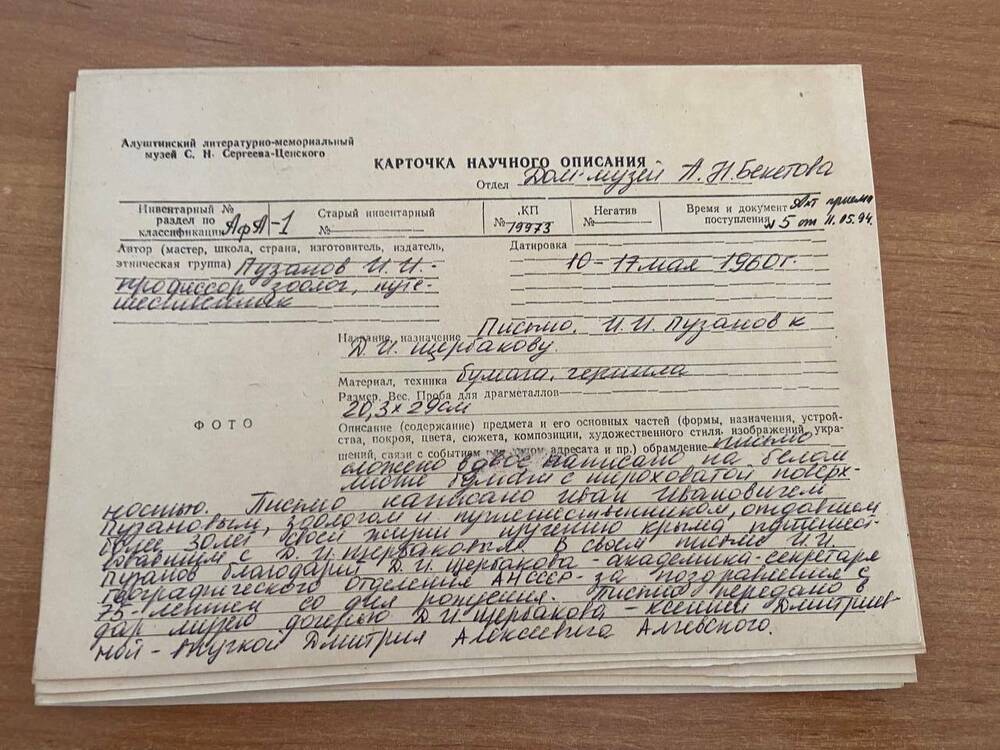 Алуштинский литературно-мемориальный
музей С. Н. Сергеева-Ценского
КАРТОЧКА НАУЧНОГО ОПИСАНИЯ
Отдел Дом-музей А.Н. Бекетова
Инвентарный №
раздел по
классификации АфА-1
Старый инвентарный
№
КП
№ 19973
Негатив
№
Время и документ Акт приема
поступления №5 от 11.05.94.
Автор (мастер, школа, страна, изготовитель, издатель,
этническая группа) Пузанов И.И. -
профессор зоолог, путе-
шественник
Датировка
10-17 мая 1960г.
Название, назначение Письмо. И.И Пузанов к
Д.И. Щербакову.
Материал, техника бумага, чернила
Размер. Вес. Проба для драгметаллов
20,3 х 29см
ФОТО
Описание (содержание) предмета и его основных частей (формы, назначения, устрой-
ства, покроя, цвета, сюжета, композиции, художественного стиля, изображений, укра-
шений, связи с событием или лицом, адресата и пр.) обрамление письмо
сложено вдвое написано на белом
листе бумаги с шероховатой поверх-
ностью. Письмо написано Иван Ивановичем
Пузановым, зоологом и путешественником, отдавшем
более 30 лет своей жизни изучению Крыма путешест-
вовавшим с Д.И. Щербаковым. В своем письме И.И.
Пузанов благодарит Д.И. Щербакова - академика-секретаря
географического отделения АНСССР - за поздравления с
75-летием со дня рождения. Письмо передано в
дар музею дочерью Д.И Щербакова - Ксенией Дмитриев-
ной - внучкой Дмитрия Алексеевича Алчевского.